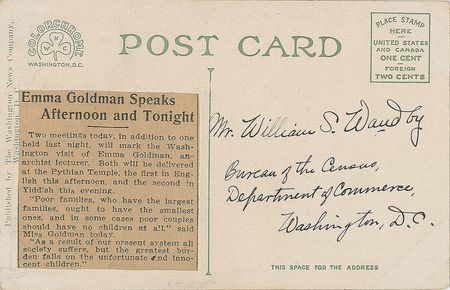 COLORCHROME
W N C
WASHINGTON, D.C.
POST CARD
PLACE STAMP
HERE
UNITED STATES
AND CANADA
ONE CENT
FOREIGN
TWO CENTS
Published by The Washington News Company,
Emma Goldman Speaks
Afternoon and Tonight
Two meetings today, in addition to one
held last night, will mark the Wash-
ington visit of Emma Goldman, an-
archist lecturer. Both will be delivered
at the Pythian Temple, the first in Eng-
lish this afternoon, and the second in
Yiddish this evening.
"Poor families, who have the largest
families, ought to have the smallest
ones, and in some cases poor couples
should have no children at all," said
Miss Goldman today.
"As a result of our present system all
society suffers, but the greatest bur-
den falls on the unfortunate and inno-
cent children."
Mr. William S. Waudby
Bureau of the Census,
Department of Commerce,
Washington, D.C.
THIS SPACE FOR THE ADDRESS